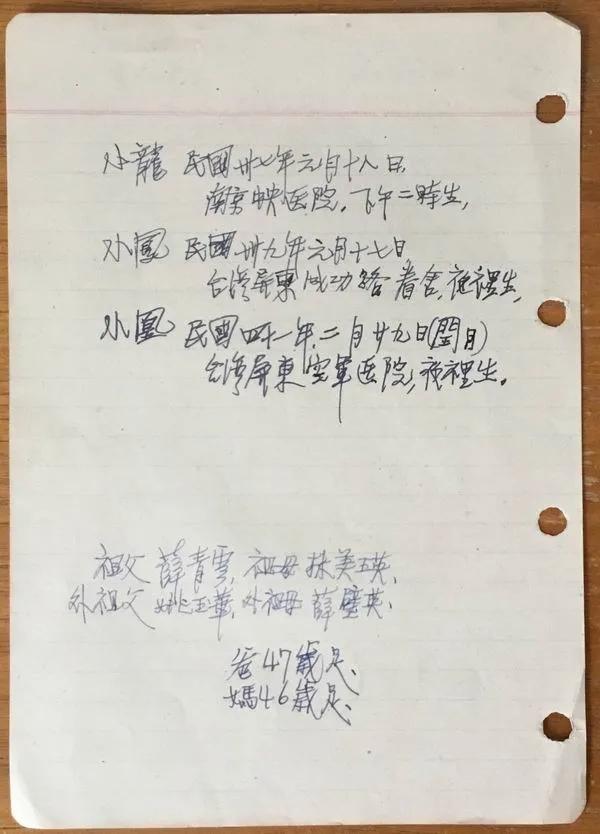 小龍 民國卅七年元月十八日,
南京中央医院,下午二時生,
小鳳 民國卅九年元月十七日
台灣屏東成功路眷舍,夜裡生,
小凰 民國四十一年,二月廿九日(閏月)
台灣屏東空軍医院,夜裡生。
祖父 薛青雲,祖母 林美英,
外祖父 姚玉華,外祖母 薛璧英.
爸47歲足、
媽46歲足、